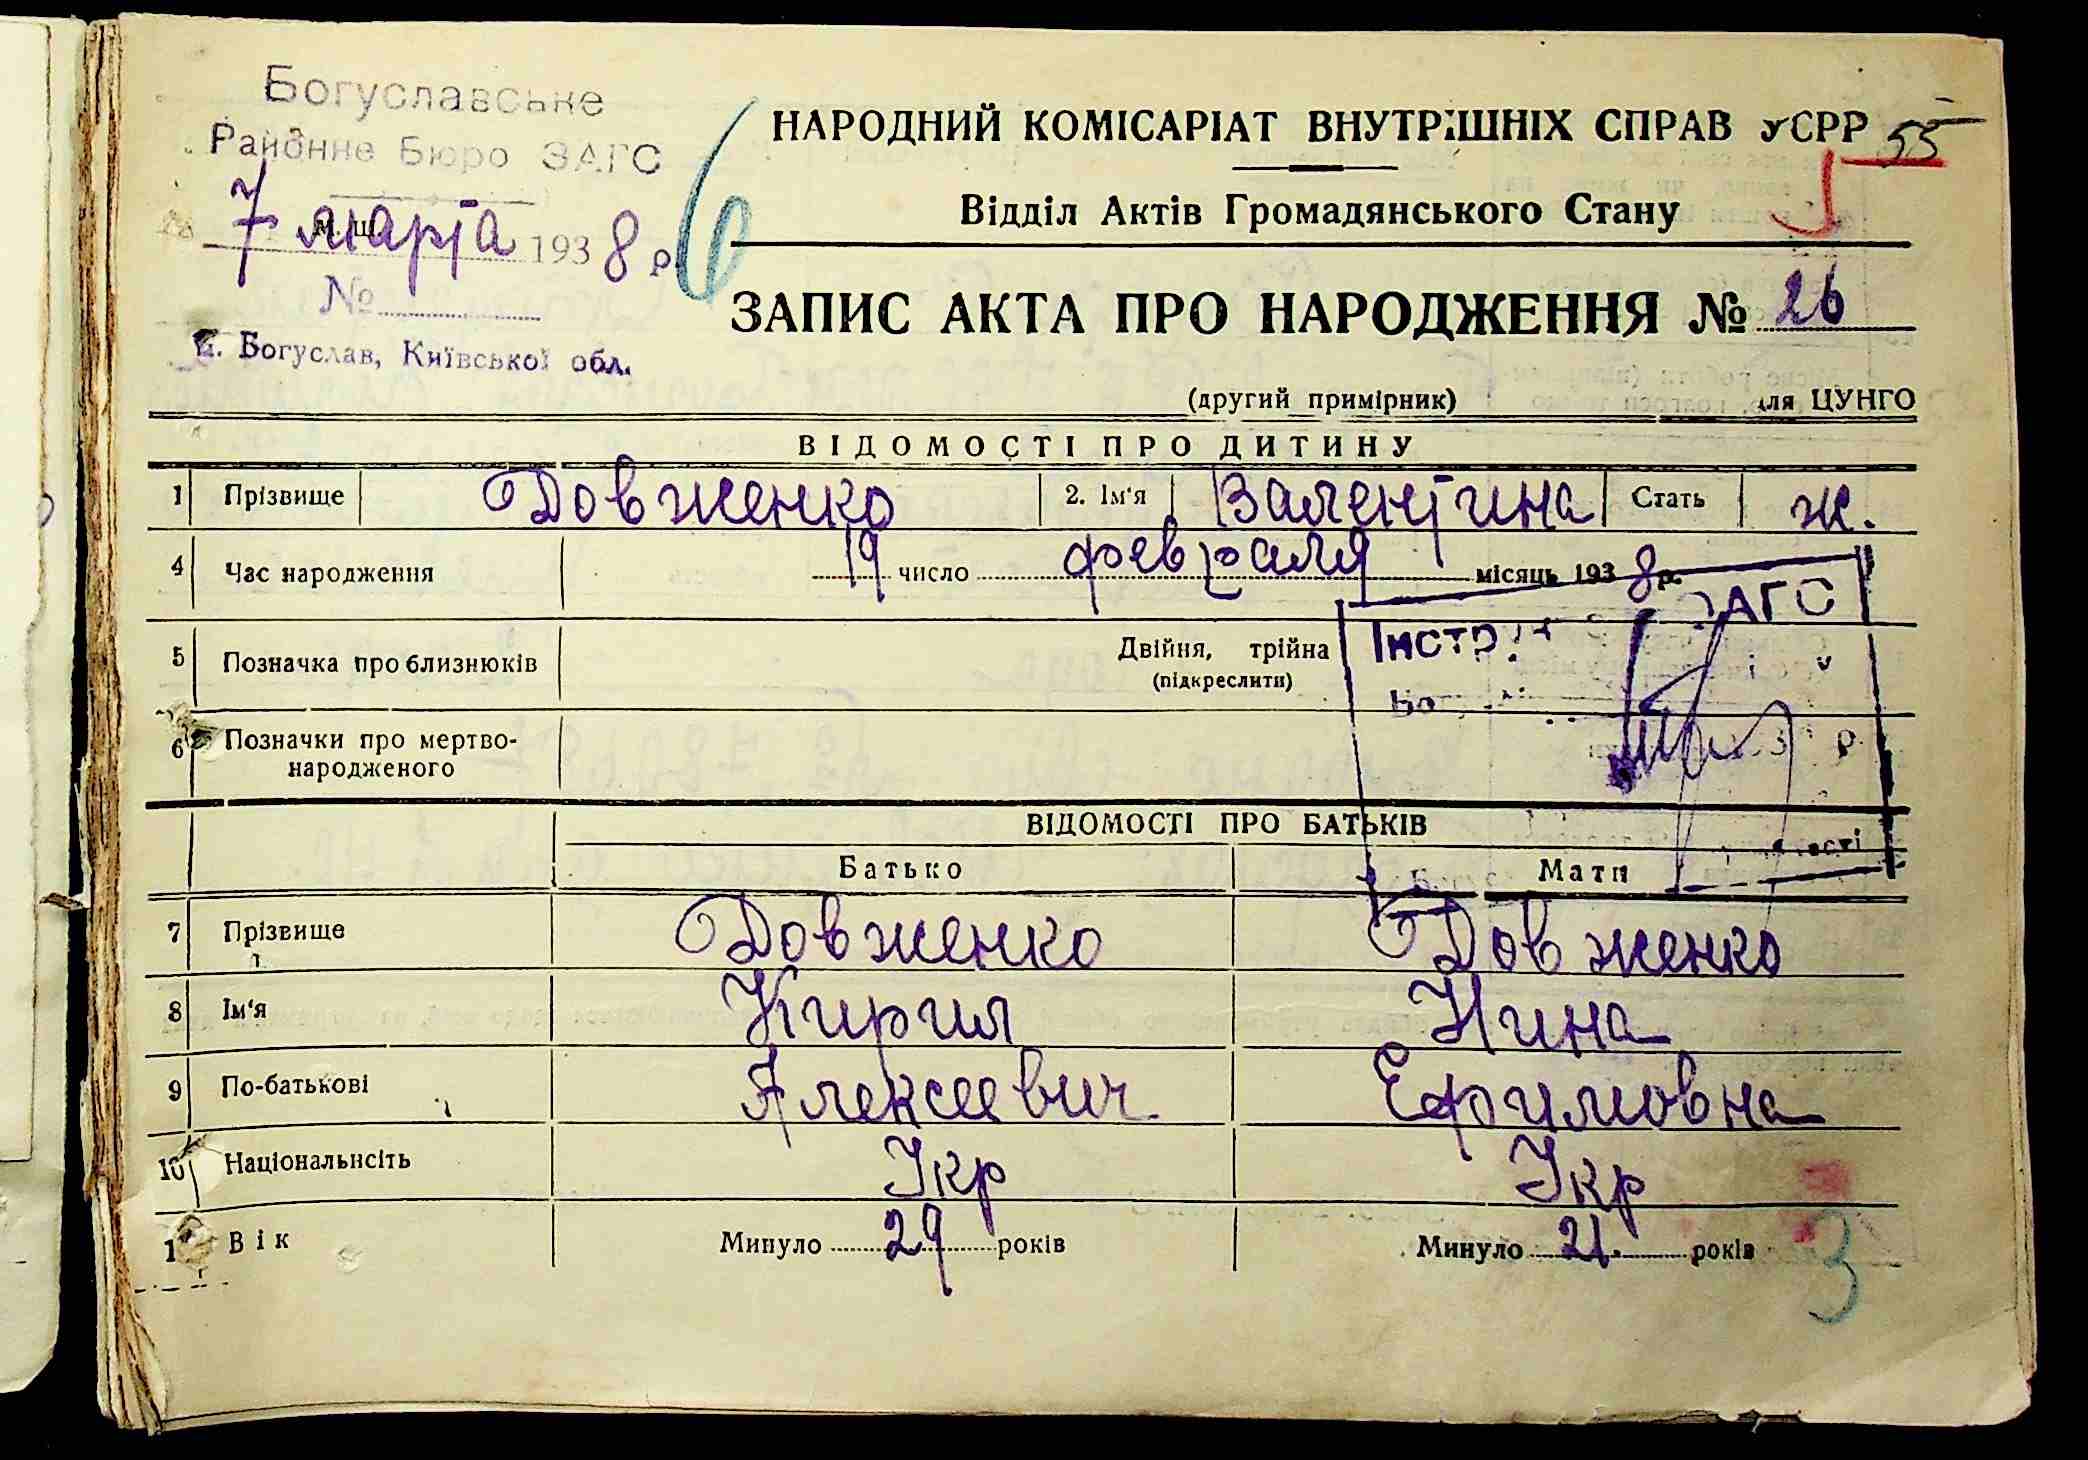 Богуславське
Районне Бюро ЗАГС
7 марта 1938 р
№
Богуслав, Київської обл.
6
НАРОДНИЙ КОМІСАРІАТ ВНУТРІШНІХ СПРАВ УСРР 55
Відділ Актів Громадянського Стану
ЗАПИС АКТА ПРО НАРОДЖЕННЯ № 26
(другий примірник) для ЦУНГО
ВІДОМОСТІ ПРО ДИТИНУ
1 Прізвище Довженко 2. Ім'я Валентина Стать ж.
4 Час народження 19 число февраля місяць 1938 р.
ЗАГС
5 Позначка про близнюків Двійня, трійна
(підкреслити)
6 Позначки про мертво-
народженого
ВІДОМОСТІ ПРО БАТЬКІВ
Батько Мати
7 Прізвище Довженко Довженко
8 Ім'я Кирил Нина
9 По-батькові Алексеевич Ефимовна
10 Національнсіть Укр Укр
1 Вік Минуло 29 років Минуло 21. років
3